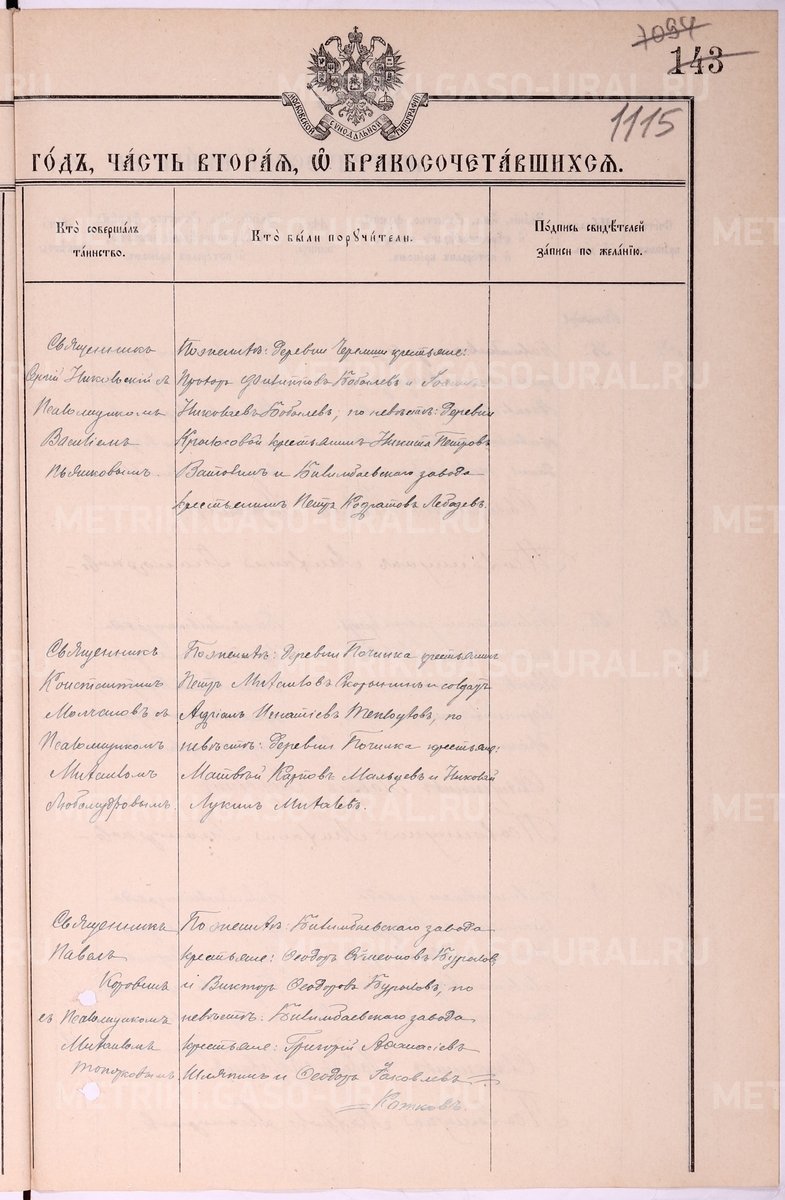 7094
143
1115
МОСКОВСКОЙ СѴНОДАЛЬНОЙ ТИПОГРАФІИ
ГО́ДЪ, ЧА́СТЬ ВТОРА́Я, Ѡ҆ БРАКОСОЧЕТА́ВШИХСЯ.
Кто̀ соверша́лъ та́инство.
Кто̀ бы́ли порꙋчи́тели.
По́дпись свидѣ́телей за́писи по жела́нїю.
Священникъ
Сергій Никольскій съ
Псаломщикомъ
Василіемъ
Пьянковымъ.
По женихѣ: Деревни Черемши крестьяне:
Прохоръ Филипповъ Бобылевъ и
Николаевъ Бобылевъ, по невѣстѣ: Деревни
Крылосовой крестьянинъ Никита Петровъ
Ватолинъ и Билимбаевскаго завода
крестьянинъ Петръ Кодратовъ Лебедевъ.
Священникъ
Константинъ
Молчановъ съ
Псаломщикомъ
Михаиломъ
Любомудровымъ.
По женихѣ: Деревни Починка крестьянинъ
Петръ Михаиловъ Скорынинъ и солдатъ
Адріанъ Игнатіевъ по
невѣстѣ: Деревни Починка крестьяне:
Матвѣй Карповъ Мальцевъ и Николай
Лукинъ Михалевъ.
Священникъ
Павелъ
Коровинъ
съ Псаломщикомъ
Михаиломъ
Топорковымъ.
По женихѣ: Билимбаевскаго завода
крестьяне: Ѳеодоръ Симеоновъ Бурмовъ
и Викторъ Ѳеодоровъ Бурмовъ, по
невѣстѣ: Билимбаевскаго завода
крестьяне: Григорій Аѳанасіевъ
Шляпинъ и Ѳеодоръ Іаковлевъ
Кожковъ.
METRIKI.GASO-URAL.RU